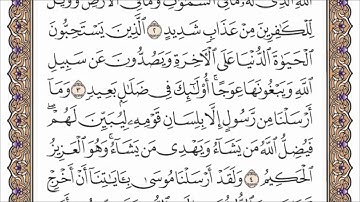 ٱللَّهِ ٱلَّذِى لَهُۥ مَا فِى ٱلسَّمَٰوَٰتِ وَمَا فِى ٱلْأَرْضِ وَوَيْلٌ
لِّلْكَٰفِرِينَ مِنْ عَذَابٍ شَدِيدٍ ٢ ٱلَّذِينَ يَسْتَحِبُّونَ
ٱلْحَيَوٰةَ ٱلدُّنْيَا عَلَى ٱلْأَخِرَةِ وَيَصُدُّونَ عَن سَبِيلِ
ٱللَّهِ وَيَبْغُونَهَا عِوَجًا ۚ أُو۟لَٰٓئِكَ فِى ضَلَٰلٍۭ بَعِيدٍ ٣ وَمَآ
أَرْسَلْنَا مِن رَّسُولٍ إِلَّا بِلِسَانِ قَوْمِهِۦ لِيُبَيِّنَ لَهُمْ ۖ
فَيُضِلُّ ٱللَّهُ مَن يَشَآءُ وَيَهْدِى مَن يَشَآءُ ۚ وَهُوَ ٱلْعَزِيزُ
ٱلْحَكِيمُ ٤ وَلَقَدْ أَرْسَلْنَا مُوسَىٰ بِـَٔايَٰتِنَآ أَنْ أَخْرِجْ